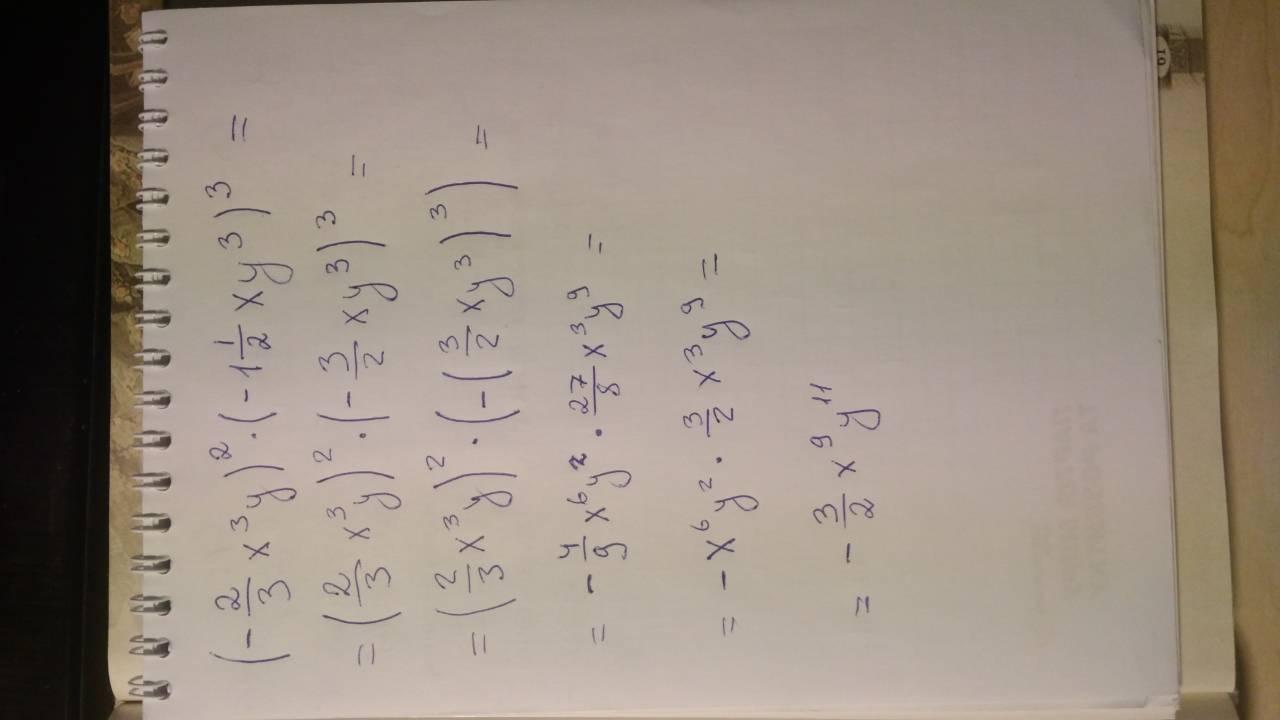 (-2/3 x³y)² · (-1 1/2 xy³)³ =
= (2/3 x³y)² · (-3/2 xy³)³ =
= (2/3 x³y)² · (-(3/2 xy³)³) =
= -4/9 x⁶y² · 27/8 x³y⁹ =
= -x⁶y² · 3/2 x³y⁹ =
= -3/2 x⁹y¹¹
61